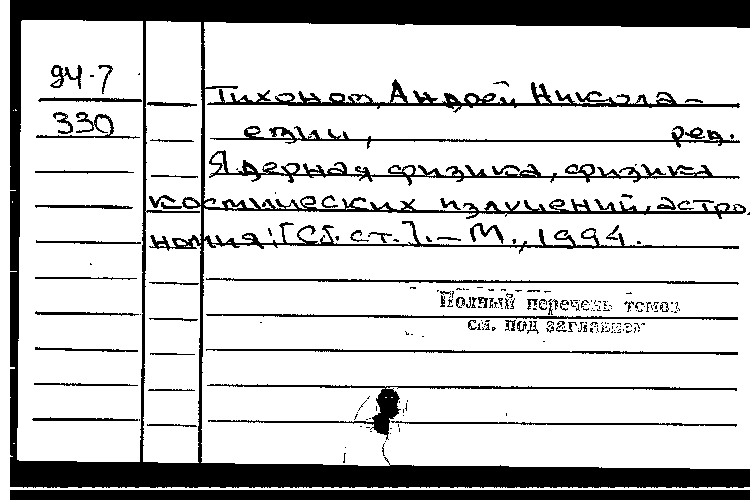 94-7
330
Тихонов, Андрей Никола-
евич, ред.
Ядерная физика, физика
космических излучений, астро
номия: [Сб. ст.]. – М., 1994.
Полный перечень томов
см. под заглавием